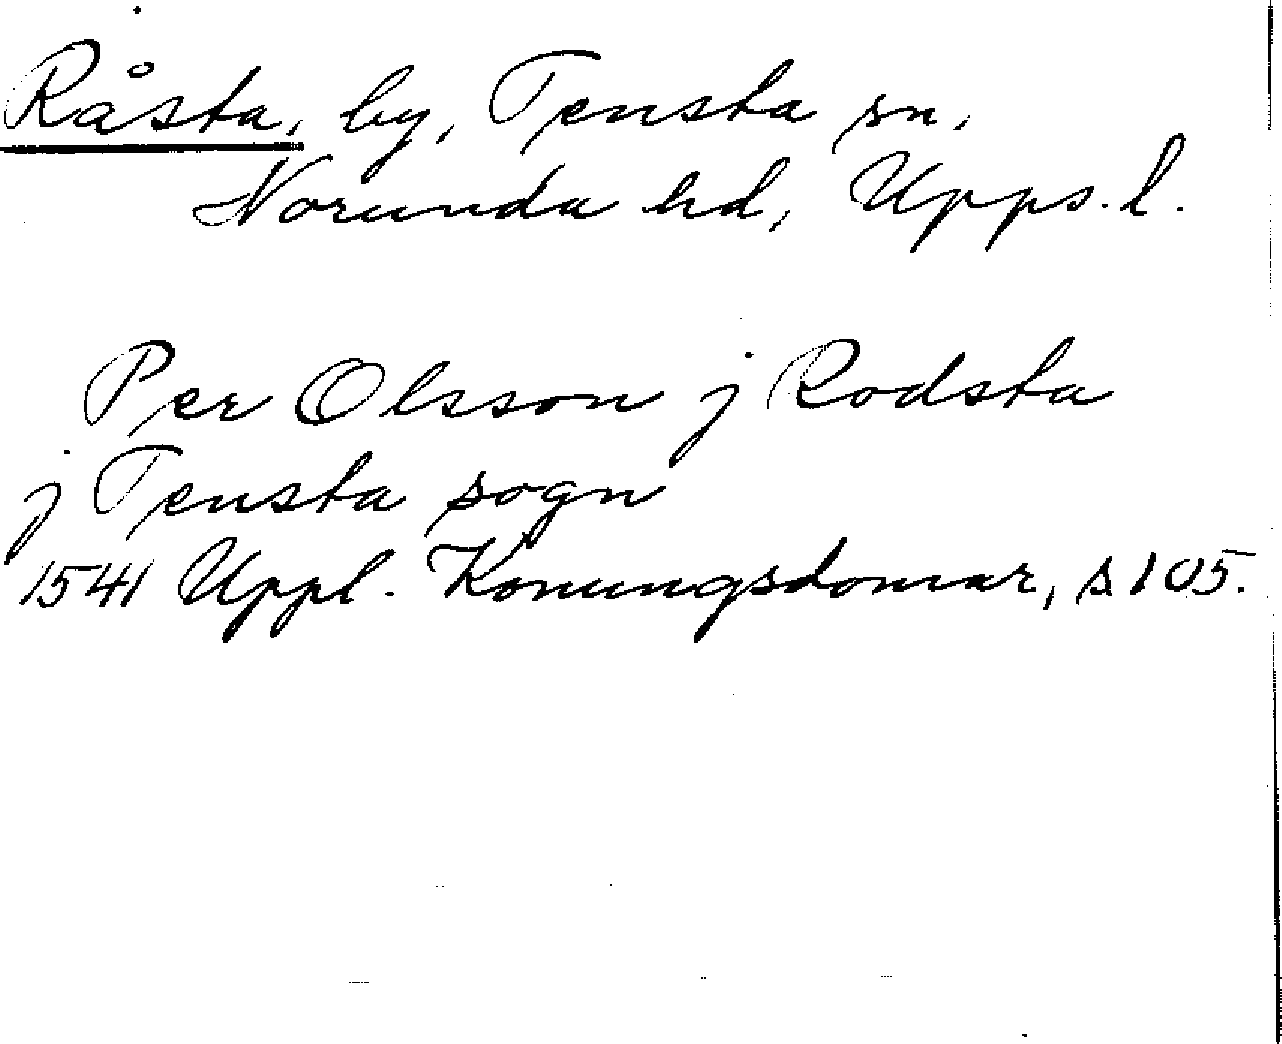 Råsta, by, Tensta sn,
Norunda hd, Upps. l.
Per Olsson j Rodsta
j Tensta sogn
1541 Uppl. Konungsdomar, s 105.